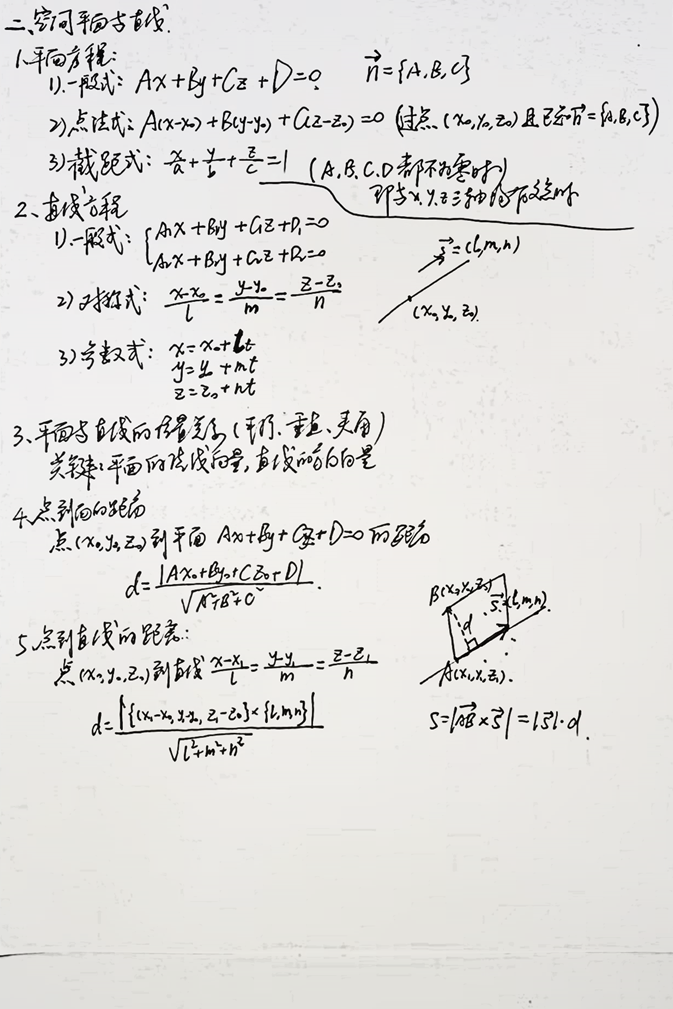 二、空间平面与直线.
1.平面方程:
1).一般式: Ax+By+Cz+D=0. n⃗={A,B,C}
2)点法式: A(x-x₀)+B(y-y₀)+C(z-z₀)=0 (过点(x₀,y₀,z₀)且已知n⃗={A,B,C})
3)截距式: x/a+y/b+z/c=1 (A.B.C.D都不为零时)
即与x,y,z三轴均有交点时
2、直线方程
1).一般式: {A₁x+B₁y+C₁z+D₁=0
A₂x+B₂y+C₂z+D₂=0
s⃗=(l,m,n)
2)对称式: (x-x₀)/l=(y-y₀)/m=(z-z₀)/n
(x₀,y₀,z₀).
3)参数式: x=x₀+lt
y=y₀+mt
z=z₀+nt
3、平面与直线的位置关系(平行、垂直、夹角)
关键:平面的法线向量,直线的方向向量
4.点到面的距离
点(x₀,y₀,z₀)到平面 Ax+By+Cz+D=0的距离
d=|Ax₀+By₀+Cz₀+D|/√(A²+B²+C²).
5.点到直线的距离:
点(x₀,y₀,z₀)到直线 (x-x₁)/l=(y-y₁)/m=(z-z₁)/n
d=|{(x₁-x₀,y₁-y₀,z₁-z₀}×{l,m,n}|/√(l²+m²+n²)
B(x₀,y₀,z₀)
s⃗=(l,m,n).
d
A(x₁,y₁,z₁).
S=|AB⃗×s⃗|=|s⃗|·d.